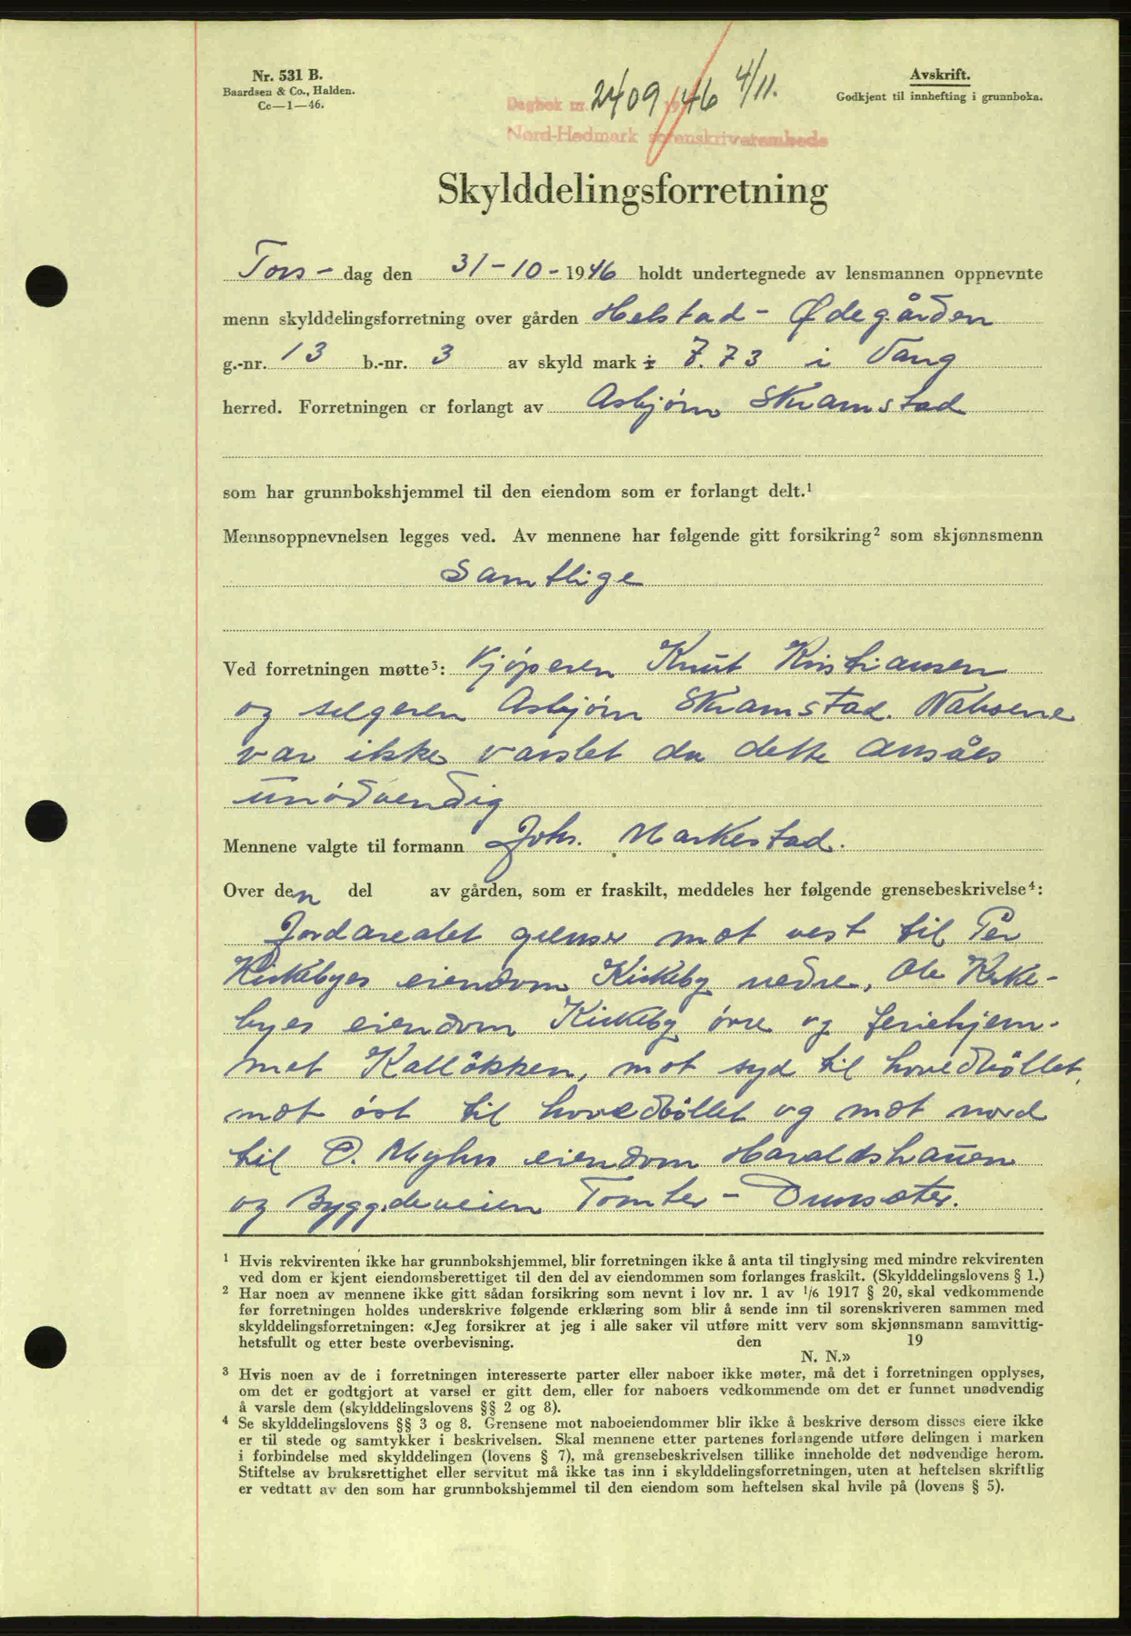 Nr. 531 B.
Baardsen & Co., Halden.
Cc—1—46.
Dagbok nr. 2409 1946 4/11.
Nord-Hedmark sorenskriverembede
Avskrift.
Godkjent til innhefting i grunnboka.
Skylddelingsforretning
Tors- dag den 31-10-1946 holdt undertegnede av lensmannen oppnevnte
menn skylddelingsforretning over gården Helstad - Ødegården
g.-nr. 13 b.-nr. 3 av skyld mark 7.73 i Vang
herred. Forretningen er forlangt av Asbjørn Skramstad
som har grunnbokshjemmel til den eiendom som er forlangt delt.¹
Mennsoppnevnelsen legges ved. Av mennene har følgende gitt forsikring² som skjønnsmenn
Samtlige
Ved forretningen møtte³: Kjøperen Knut Kristiansen
og selgeren Asbjørn Skramstad. Naboene
var ikke varslet da dette ansåes
unødvendig
Mennene valgte til formann Joh. Markestad.
Over den del av gården, som er fraskilt, meddeles her følgende grensebeskrivelse⁴:
Jordarealet grenser mot vest til Per
Kirkebyes eiendom Kirkeby nedre, Ole Kirke-
byes eiendom Kirkeby övre og feriehjem-
met Kallökken, mot syd til hovedböllet,
mot öst til hovedböllet og mot nord
til O. Myhrs eiendom Haraldshauen
og Byggdeveien Tomter - Dunsæter.
¹ Hvis rekvirenten ikke har grunnbokshjemmel, blir forretningen ikke å anta til tinglysing med mindre rekvirenten
ved dom er kjent eiendomsberettiget til den del av eiendommen som forlanges fraskilt. (Skylddelingslovens § 1.)
² Har noen av mennene ikke gitt sådan forsikring som nevnt i lov nr. 1 av ¹/6 1917 § 20, skal vedkommende
før forretningen holdes underskrive følgende erklæring som blir å sende inn til sorenskriveren sammen med
skylddelingsforretningen: «Jeg forsikrer at jeg i alle saker vil utføre mitt verv som skjønnsmann samvittig-
hetsfullt og etter beste overbevisning. den 19
N. N.»
³ Hvis noen av de i forretningen interesserte parter eller naboer ikke møter, må det i forretningen opplyses,
om det er godtgjort at varsel er gitt dem, eller for naboers vedkommende om det er funnet unødvendig
å varsle dem (skylddelingslovens §§ 2 og 8).
⁴ Se skylddelingslovens §§ 3 og 8. Grensene mot naboeiendommer blir ikke å beskrive dersom disses eiere ikke
er til stede og samtykker i beskrivelsen. Skal mennene etter partenes forlangende utføre delingen i marken
i forbindelse med skylddelingen (lovens § 7), må grensebeskrivelsen tillike inneholde det nødvendige herom.
Stiftelse av bruksrettighet eller servitut må ikke tas inn i skylddelingsforretningen, uten at heftelsen skriftlig
er vedtatt av den som har grunnbokshjemmel til den eiendom som heftelsen skal hvile på (lovens § 5).